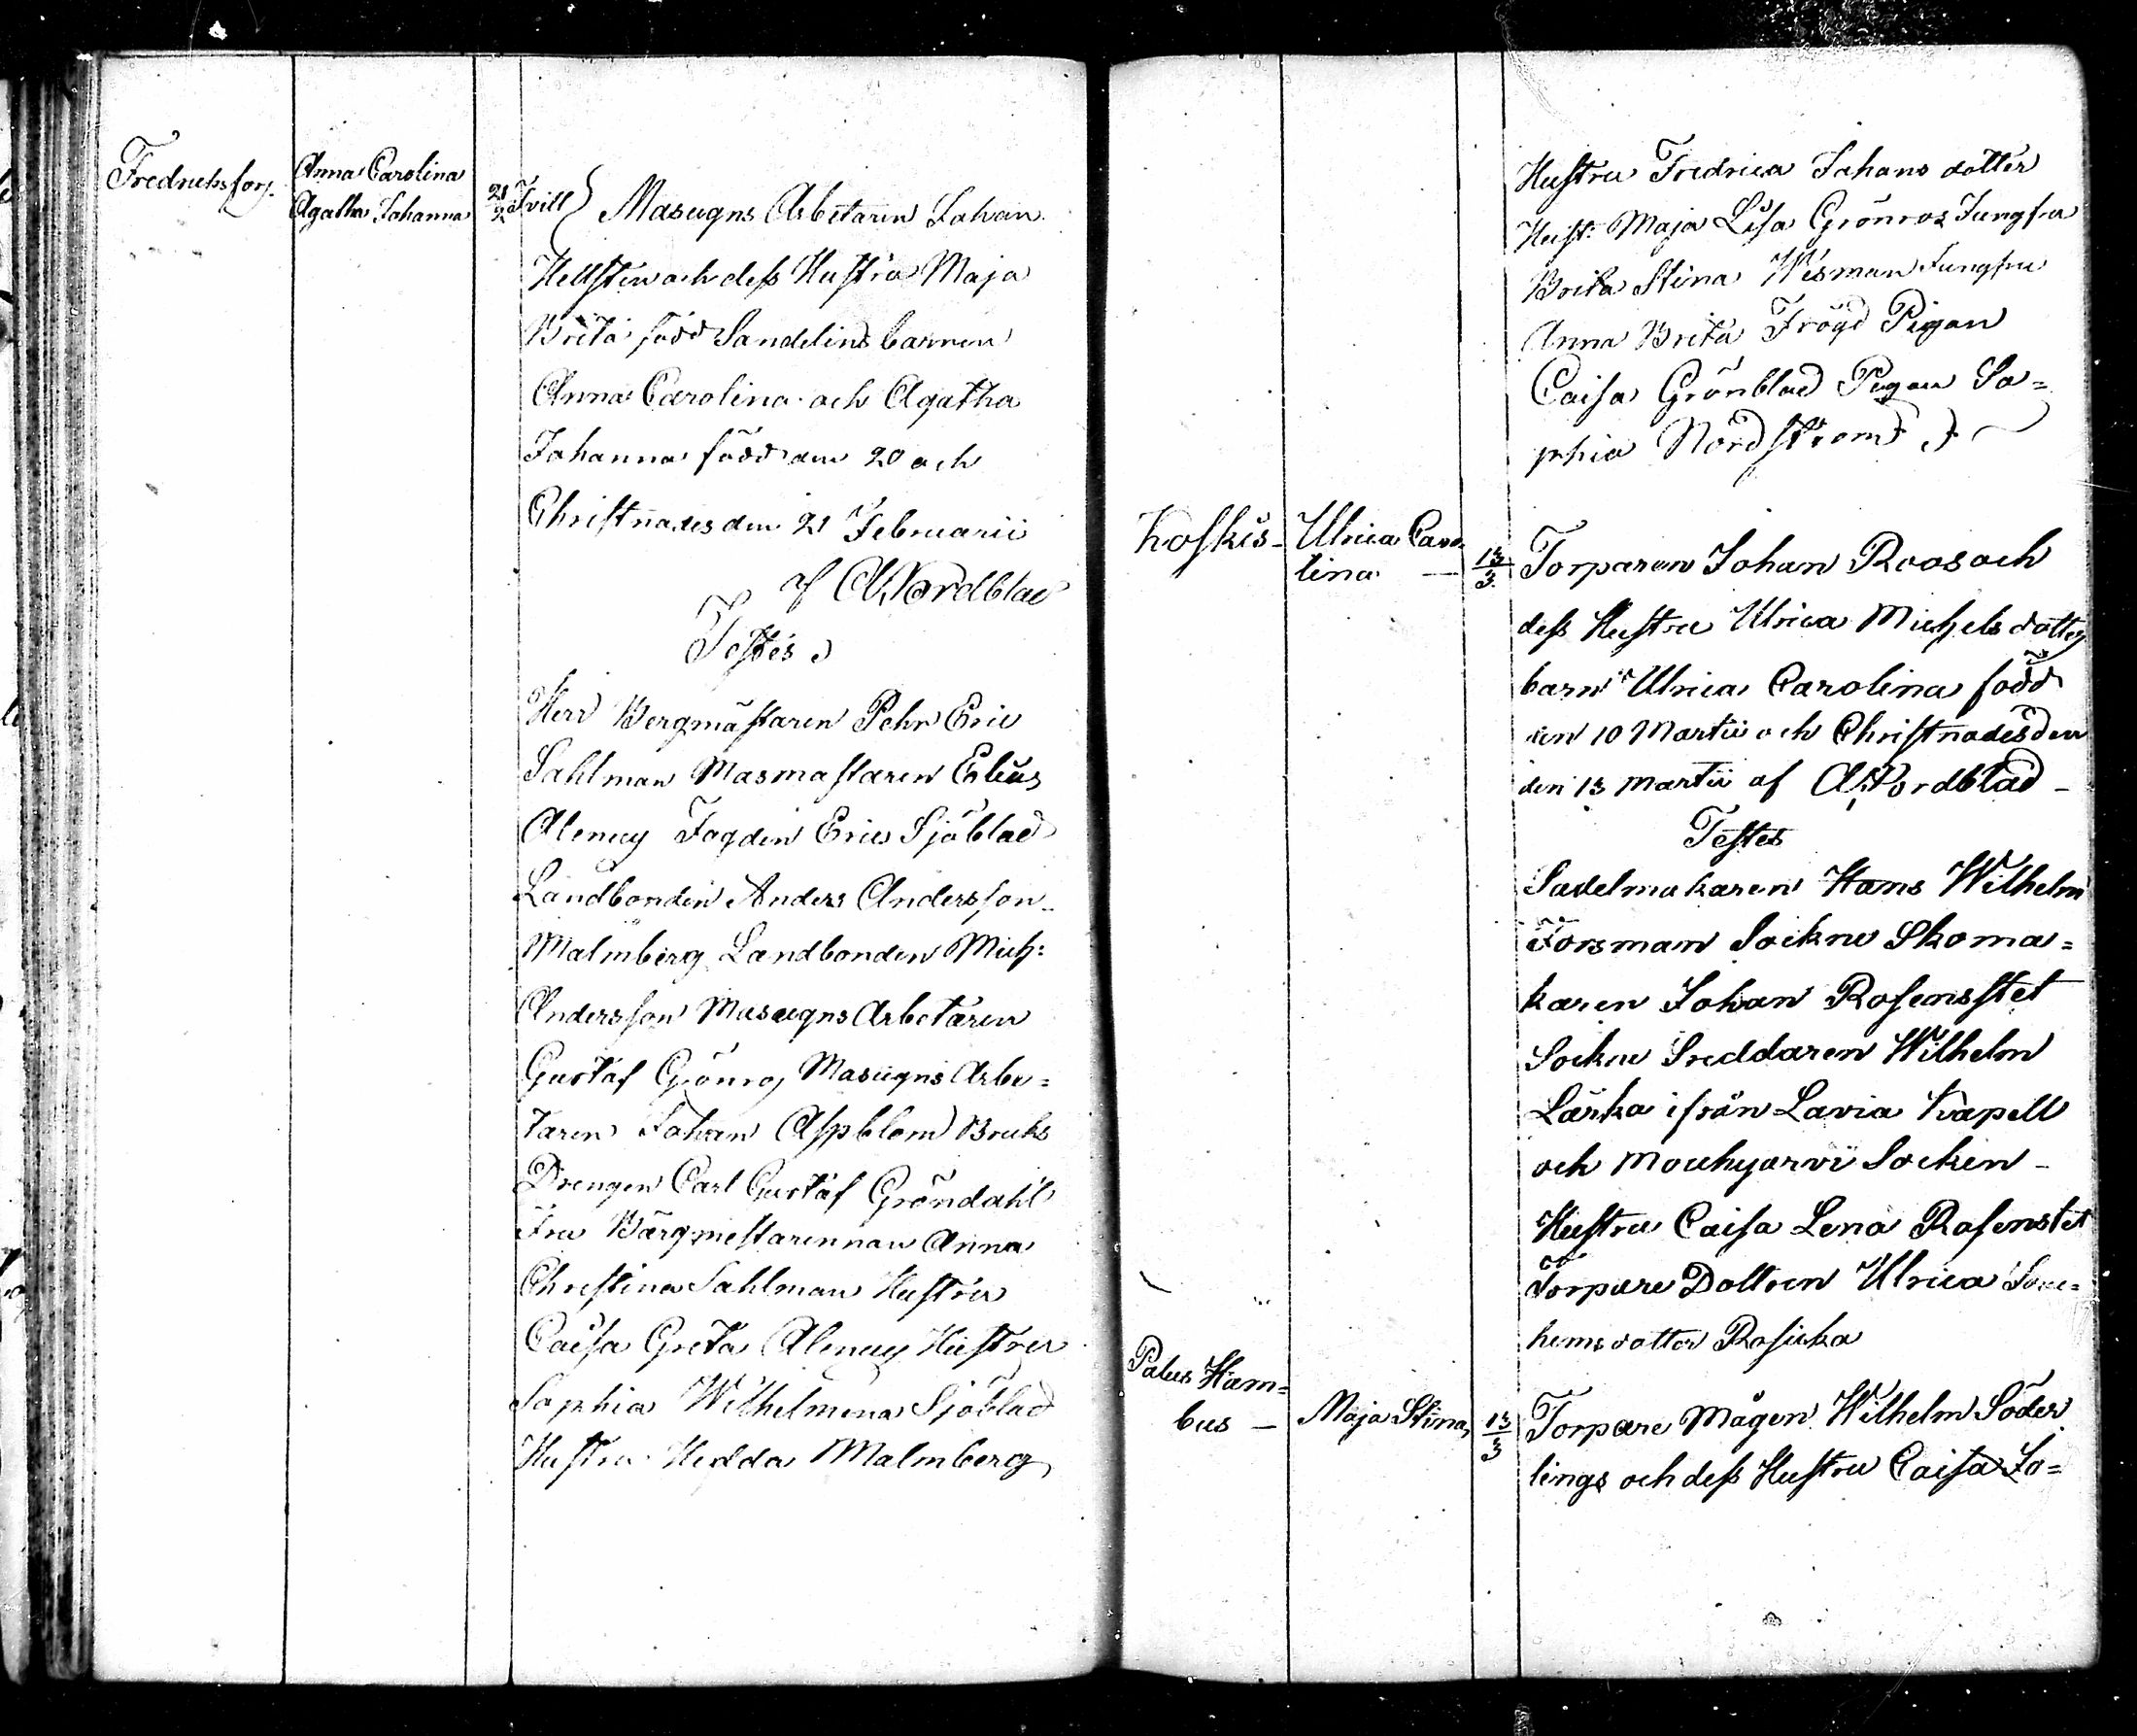 Fredrichsfors.
Anna Carolina
Agatha Johanna
21/2
Tvill} Masugns Arbetaren Johan
Hellsten och dess Hustru Maja
Brita född Sandelin barnen
Anna Carolina och Agatha
Johanna född den 20 och
Christnades den 21 Februarii
af A Nordblad
Testes
Herr Bergmästaren Pehr Eric
Sahlman Masmastaren Elias
Alenuy Fogden Eric Sjöblad
Landbonden Anders Andersson
Malmberg Landbonden Mich:
Andersson Masugns Arbetaren
Gustaf Grönros Masugns Arbe=
taren Johan Aspblom Bruks
Drengen Carl Gustaf Gröndahl
Fru Bärgmestarennan Anna
Christina Sahlman Hustru
Caisa Greta Alenuy Hustru
Sophia Wilhelmina Sjöblad
Hustru Hedda Malmberg
Hustru Fredrica Johans dotter
Hust: Maja Lisa Grönros Jungfru
Brita Stina Wesman Jungfru
Anna Brita Fröyd Pigan
Caisa Grönblad Pigan So=
phia Nordstrom
Koskis-
Ulrica Caro-
lina —
13/3
Torparen Johan Roos och
dess Hustru Ulrica Michels dotter
barn Ulrica Carolina född
den 10 Martii och Christnades den
den 13 Martii af A Nordblad –
Testes
Sadelmakaren Hans Wilhelm
Forsman Sockne Skoma=
karen Johan Rosensstet
Sockne Sreddaren Wilhelm
Lärka ifrån Lavia Kapell
och Mouhyarvi Socken –
Hustru Caisa Lena Rosenstet
Torpare Dottren Ulrica Joac=
hims dotter Rosicka
Palus Ham=
bus —
Maja Stina
13/3
Torpare Mågen Wilhelm Söder
lings och dess Hustru Caisa Jo=